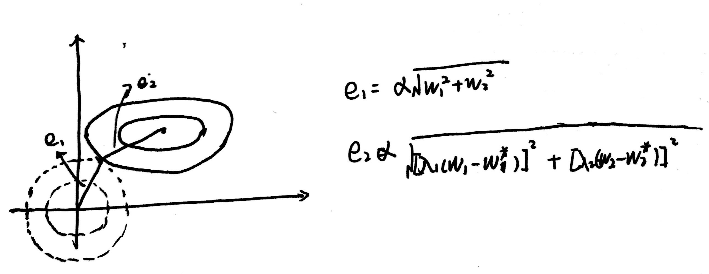 e₂
e₁
e₁ = α√w₁²+w₂²
e₂ α √[λ₁(w₁-w₁*)]² + [λ₂(w₂-w₂*)]²